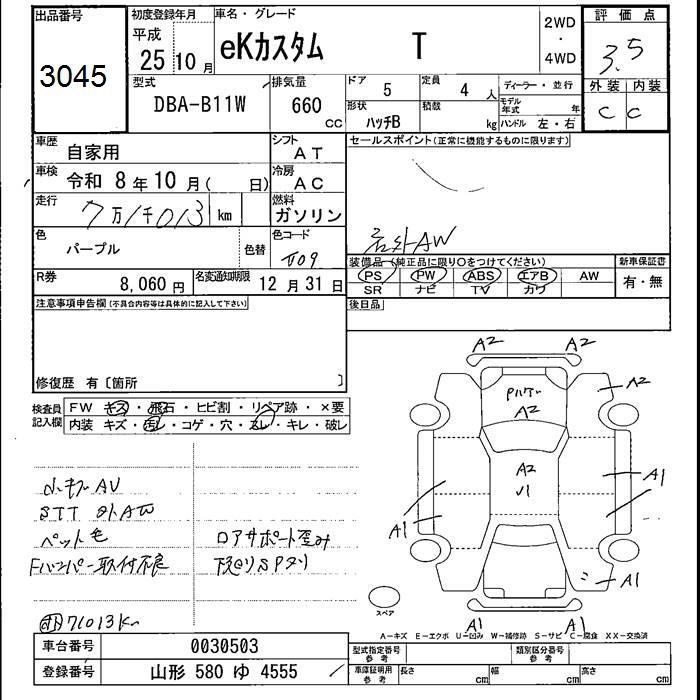 出品番号
3045
初度登録年月
平成
25 10 月
車名・グレード
eKカスタム T
2WD
・
4WD
評価点
3.5
外装 内装
C C
型式
DBA-B11W
排気量
660
cc
ドア
5
定員
4 人
ディーラー・並行
形状
ハッチB
積数
kg
モデル年式 年
ハンドル 左・右
車歴
自家用
シフト
AT
セールスポイント(正常に機能するものに限ります)
車検
令和 8 年 10 月( 日)
冷房
AC
走行
7万1千013 km
燃料
ガソリン
色
パープル
色替
色コード
社外AW
R券
8,060 円
名変通知期限
12 月 31 日
装備品(純正品に限り○をつけてください)
PS PW ABS エアB AW
SR ナビ TV カワ
新車保証書
有・無
注意事項申告欄(不具合内容等は具体的に記入して下さい)
後日品
修復歴 有〔箇所 〕
検査員
記入欄
FW キズ・飛石・ヒビ割・リペア跡・×要
内装 キズ・汚レ・コゲ・穴・スレ・キレ・破レ
A2 A2
A2
A2
A2
A1
A1
A1
A1 A1
スペア
STT 外AW
ペット毛
Fバンパー取付不良
ロアサポート歪み
下廻りSPヌリ
71013K
A-キズ E-エクボ U-凹み W-補修跡 S-サビ C-腐食 XX-交換済
車台番号
0030503
登録番号
山形 580 ゆ 4555
型式指定番号
参考
類別区分番号
参考
車庫証明用
参考
長さ cm
幅 cm
高さ cm